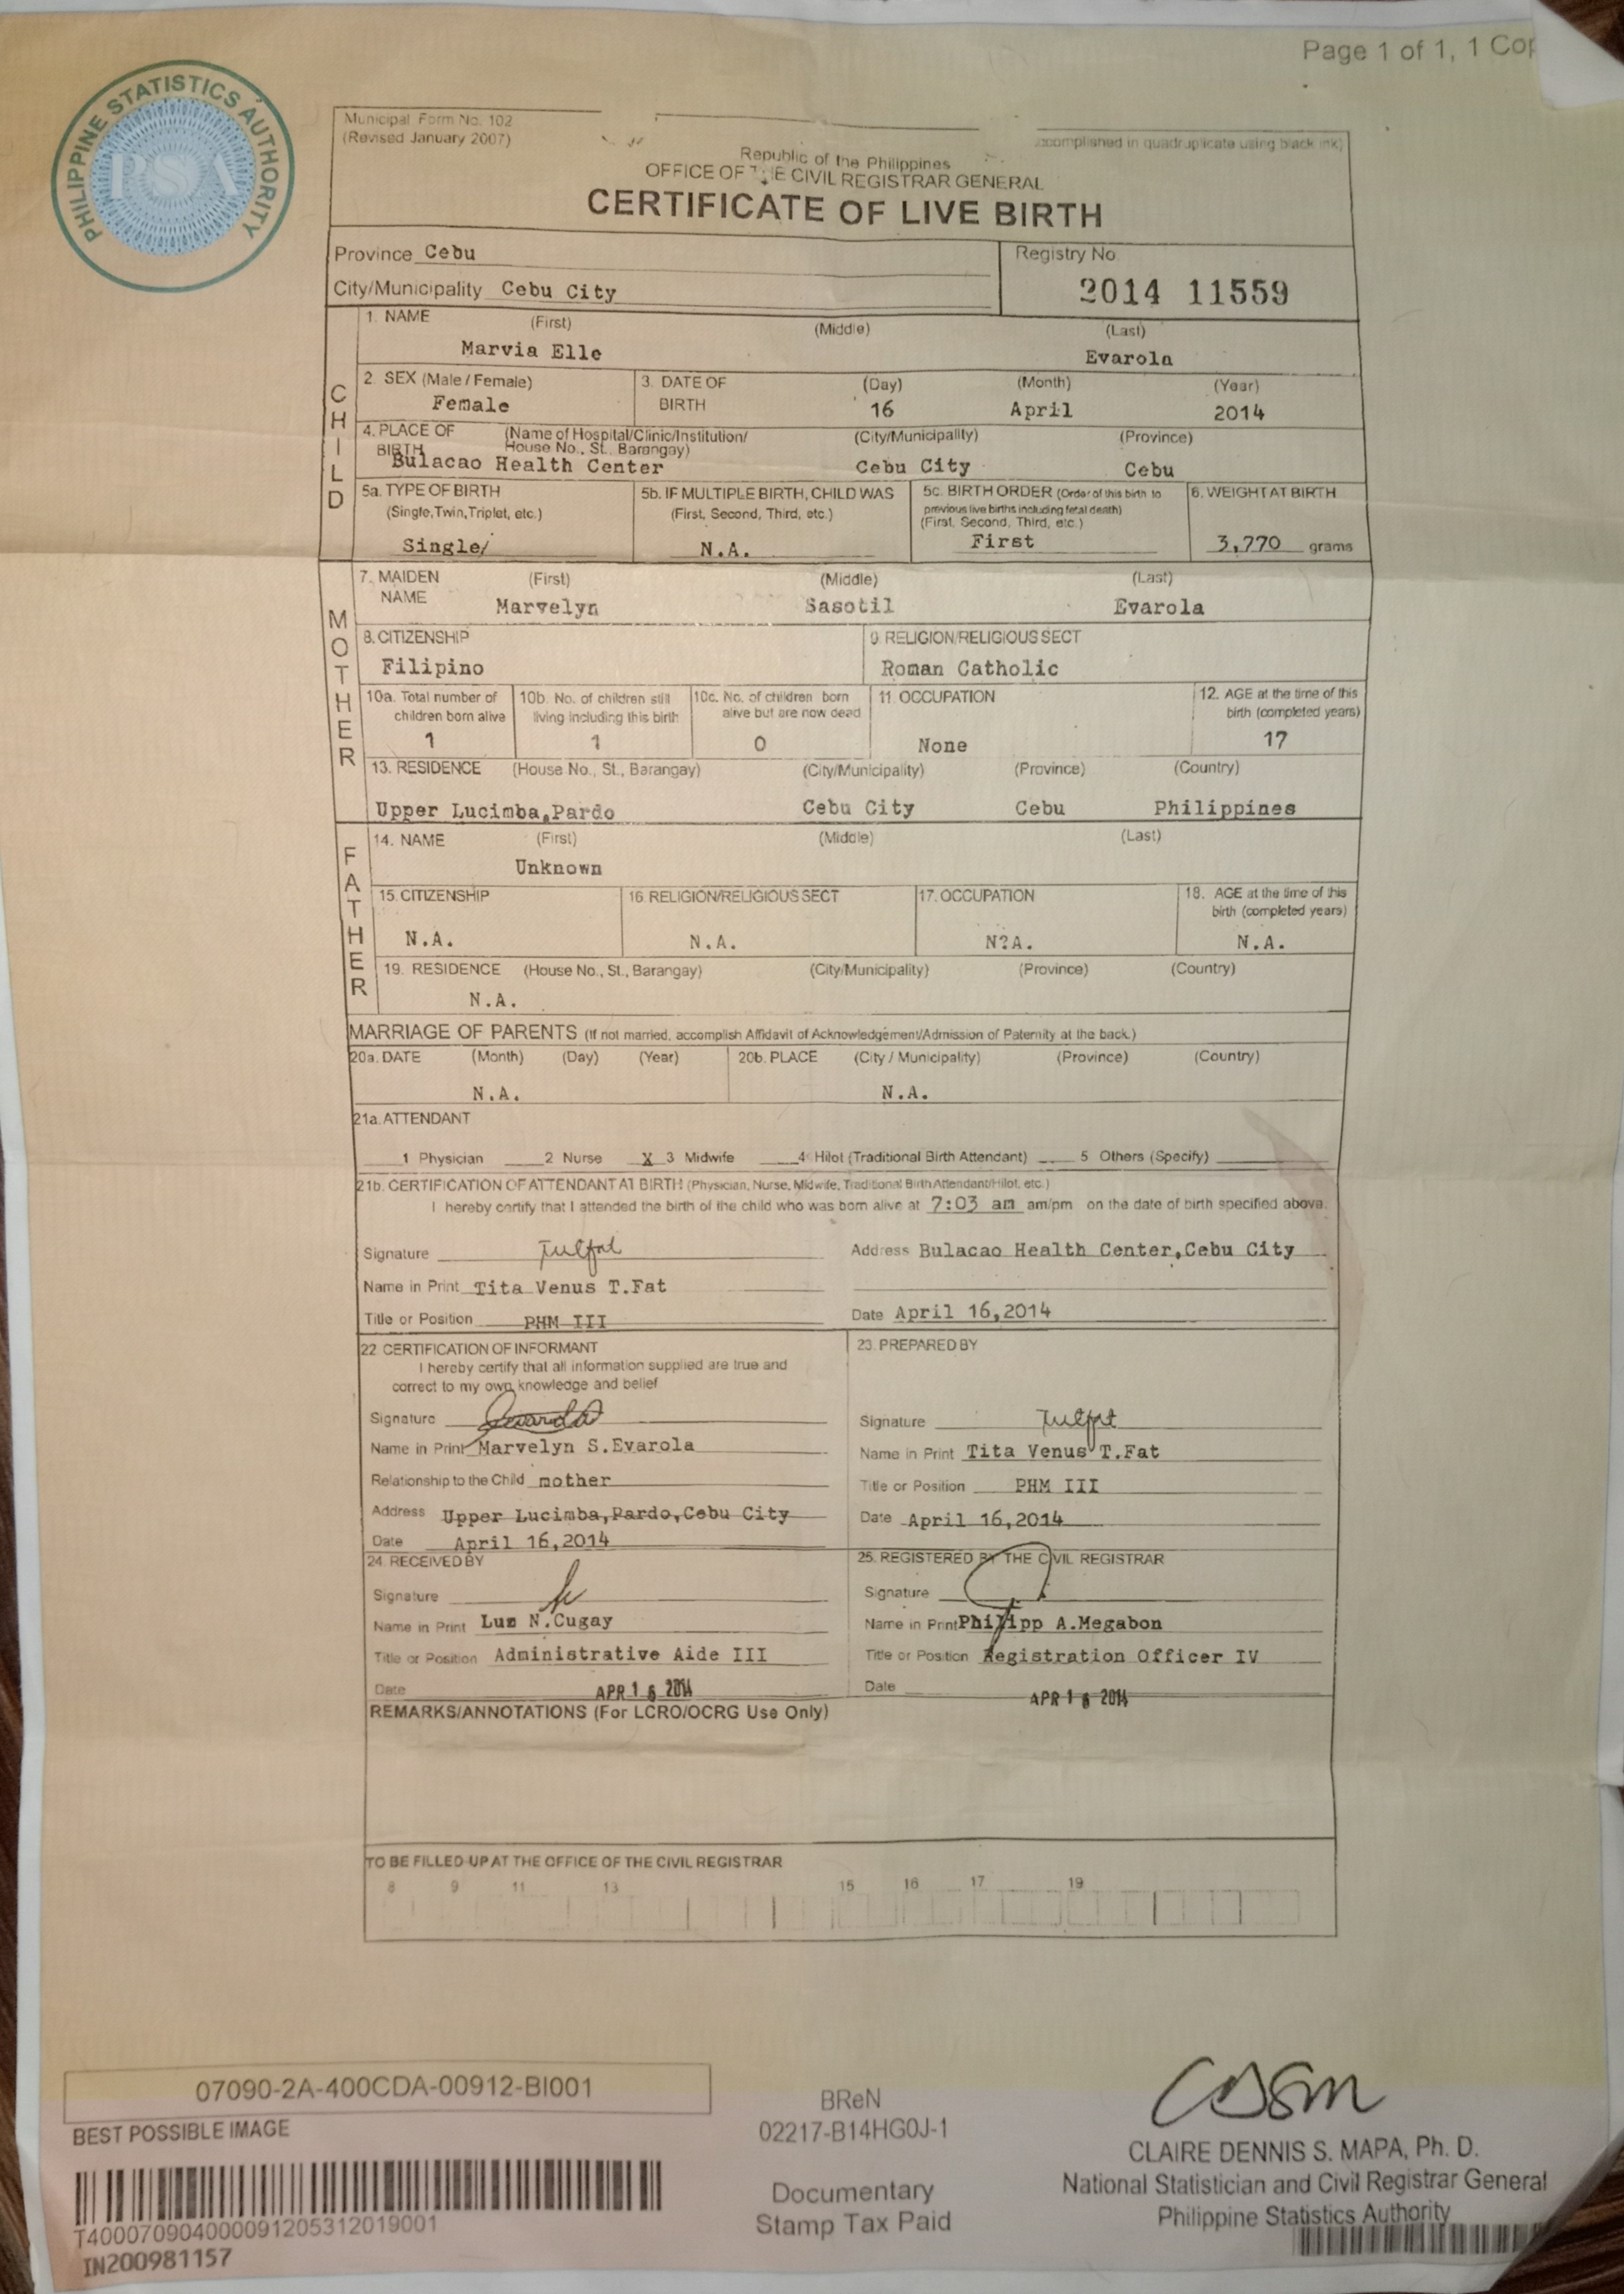 Page 1 of 1, 1 Cop
PHILIPPINE STATISTICS AUTHORITY
PSA
Municipal Form No. 102
(Revised January 2007)
accomplished in quadruplicate using black ink)
Republic of the Philippines
OFFICE OF THE CIVIL REGISTRAR GENERAL
CERTIFICATE OF LIVE BIRTH
Province Cebu
Registry No.
City/Municipality Cebu City
2014 11559
CHILD
1. NAME (First) (Middle) (Last)
Marvia Elle Evarola
2. SEX (Male / Female) 3. DATE OF BIRTH (Day) (Month) (Year)
Female 16 April 2014
4. PLACE OF BIRTH (Name of Hospital/Clinic/Institution/ House No., St., Barangay) (City/Municipality) (Province)
Bulacao Health Center Cebu City Cebu
5a. TYPE OF BIRTH (Single, Twin, Triplet, etc.) 5b. IF MULTIPLE BIRTH, CHILD WAS (First, Second, Third, etc.) 5c. BIRTH ORDER (Order of this birth to previous live births including fetal death) (First, Second, Third, etc.) 6. WEIGHT AT BIRTH
Single/ N.A. First 3,770 grams
MOTHER
7. MAIDEN NAME (First) (Middle) (Last)
Marvelyn Sasotil Evarola
8. CITIZENSHIP 9. RELIGION/RELIGIOUS SECT
Filipino Roman Catholic
10a. Total number of children born alive 10b. No. of children still living including this birth 10c. No. of children born alive but are now dead 11. OCCUPATION 12. AGE at the time of this birth (completed years)
1 1 0 None 17
13. RESIDENCE (House No., St., Barangay) (City/Municipality) (Province) (Country)
Upper Lucimba,Pardo Cebu City Cebu Philippines
FATHER
14. NAME (First) (Middle) (Last)
Unknown
15. CITIZENSHIP 16. RELIGION/RELIGIOUS SECT 17. OCCUPATION 18. AGE at the time of this birth (completed years)
N.A. N.A. N?A. N.A.
19. RESIDENCE (House No., St., Barangay) (City/Municipality) (Province) (Country)
N.A.
MARRIAGE OF PARENTS (If not married, accomplish Affidavit of Acknowledgement/Admission of Paternity at the back.)
20a. DATE (Month) (Day) (Year) 20b. PLACE (City / Municipality) (Province) (Country)
N.A. N.A.
21a. ATTENDANT
1 Physician 2 Nurse X 3 Midwife 4 Hilot (Traditional Birth Attendant) 5 Others (Specify)
21b. CERTIFICATION OF ATTENDANT AT BIRTH (Physician, Nurse, Midwife, Traditional Birth Attendant/Hilot, etc.)
I hereby certify that I attended the birth of the child who was born alive at 7:03 am am/pm on the date of birth specified above.
Signature Address Bulacao Health Center,Cebu City
Name in Print Tita Venus T.Fat
Title or Position PHM III Date April 16,2014
22. CERTIFICATION OF INFORMANT
I hereby certify that all information supplied are true and
correct to my own knowledge and belief
Signature
Name in Print Marvelyn S.Evarola
Relationship to the Child mother
Address Upper Lucimba,Pardo,Cebu City
Date April 16,2014
23. PREPARED BY
Signature
Name in Print Tita Venus T.Fat
Title or Position PHM III
Date April 16,2014
24. RECEIVED BY
Signature
Name in Print Luz N.Cugay
Title or Position Administrative Aide III
Date APR 16 2014
25. REGISTERED BY THE CIVIL REGISTRAR
Signature
Name in Print Philipp A.Megabon
Title or Position Registration Officer IV
Date APR 16 2014
REMARKS/ANNOTATIONS (For LCRO/OCRG Use Only)
TO BE FILLED-UP AT THE OFFICE OF THE CIVIL REGISTRAR
8 9 11 13 15 16 17 19
07090-2A-400CDA-00912-BI001
BEST POSSIBLE IMAGE
T400070904000091205312019001
IN200981157
BReN
02217-B14HG0J-1
Documentary
Stamp Tax Paid
CLAIRE DENNIS S. MAPA, Ph. D.
National Statistician and Civil Registrar General
Philippine Statistics Authority